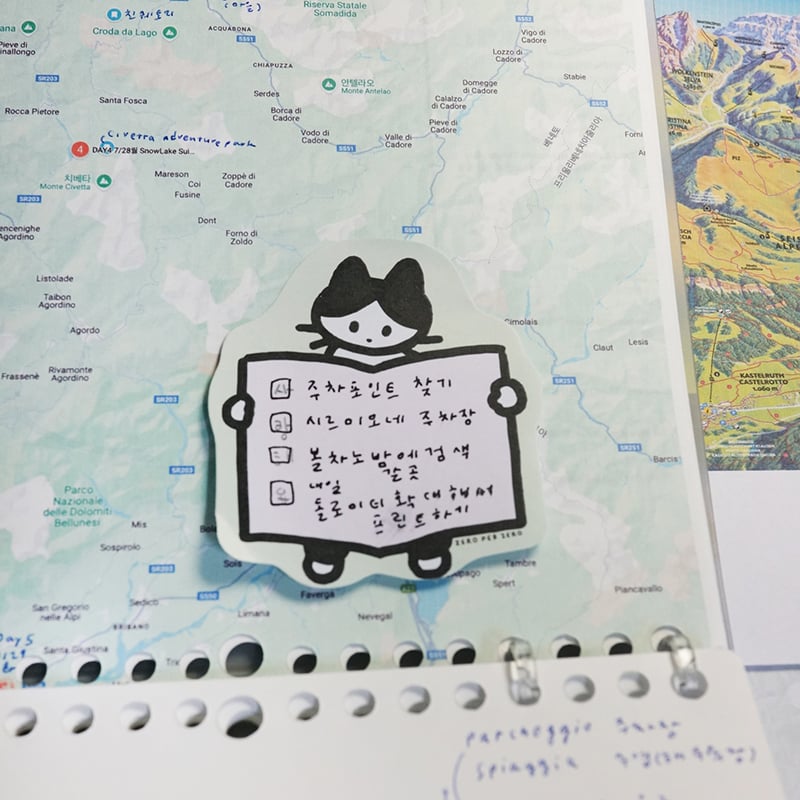 친퀘토리
(마을)
Riserva Statale
Somadida
Croda da Lago
ACQUABONA
SS51
Pieve di
Vigo di
Cadore
Lozzo di
Cadore
CHIAPUZZA
안텔라오
Monte Antelao
Stabie
SS52
SR203
Santa Fosca
Serdes
Domegge
di Cadore
Calalzo
di Cadore
Rocca Pietore
Borca di
Cadore
Pieve di
Cadore
Vodo di
Cadore
Valle di
Cadore
SS51
베네토
프리울리베네치아줄리아
Forni
Civetta adventure park
4 DAY4 7/28월 SnowLake Sui...
치베타
Monte Civetta
Mareson
Coi
Fusine
Zoppè di
Cadore
SR203
Dont
Forno di
Zoldo
Agordino
SS51
Listolade
Taibon
Agordino
Agordo
Frassenè
Rivamonte
Agordino
Cimolais
Claut
Lesis
SR251
SR203
SR251
Barcis
주차포인트 찾기
시르미오네 주차장
볼차노 밤에 검색
갈곳
내일
돌로미티 확대해서
프린트하기
ZERO PER ZERO
SR203
Parco
Nazionale
delle Dolomiti
Bellunesi
Mis
Sospirolo
Sois
SR203
SS50
Faverga
A27
Tambre
Spert
Piancavallo
San Gregorio
nelle Alpi
Sedico
Limana
Nevegal
BRIBANO
Day 5
Santa Giustina
WOLKENSTEIN
SELVA
PIZ
KASTELRUTH
CASTELROTTO
1.060 m
parcheggio 주차장
spiaggia